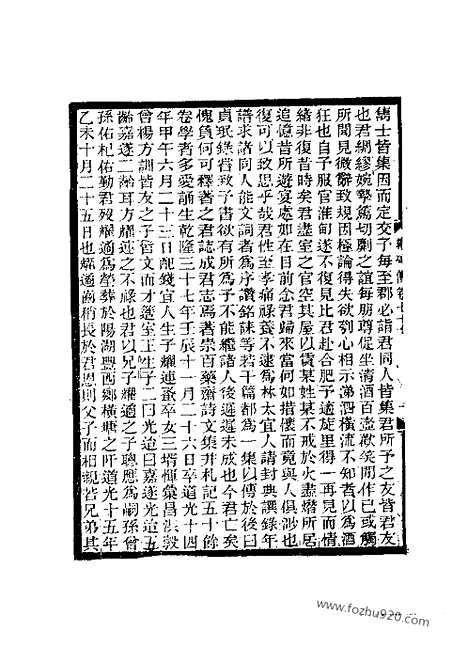 雋士皆集因而定交予每至郡必詣君同人皆集君所予之友皆君友
也君綢繆婉摯篤切劘之誼每朋尊促坐清酒百壺歡笑間作已或觴
所聞見微辭致規因極論得失欲刳心相示涕泗橫流不知者以為酒
狂也自予服官淮甸遂不復見比君赴合肥予適旋里得一再見而情
緒非復昔時矣君盡室之官空其屋以賃某姓某不戒於火盡燔所居
追憶昔所遊宴處如在目前念君歸來當何如惜懷而竟與人俱渺也
復可以致思乎哉君性至孝痛祿養不逮為林太宜人請封典譔錄年
譜求諸同人能文詞者為序讚銘誄等若干篇都為一集以傳於後曰
貞珉錄嘗致予書欲有所為予不能繼諸人後遲遲未成也今君亡矣
愧負何可釋著之君誌成君志焉著崇百藥齋詩文集并札記五十餘
卷學者多愛誦生乾隆三十七年壬辰十一月二十六日卒道光十四
年甲午六月二十三日配錢宜人生子耀連蚤卒女三壻惲彙昌洪敦
曾楊方訓皆友之子皆文而才簉室王生子二曰光迨曰嘉遂光迨五
齡嘉遂二齡耳方耀連之不祿也君以兄子耀遹之子聰應為嗣孫曾
孫佑杞佑勤君歿耀遹為塋葬於陽湖豐西鄉橫塘之阡道光十五年
乙未十月二十五日也耀遹齒稍長於君恩則父子而相親若兄弟其
www.fozhu920.com